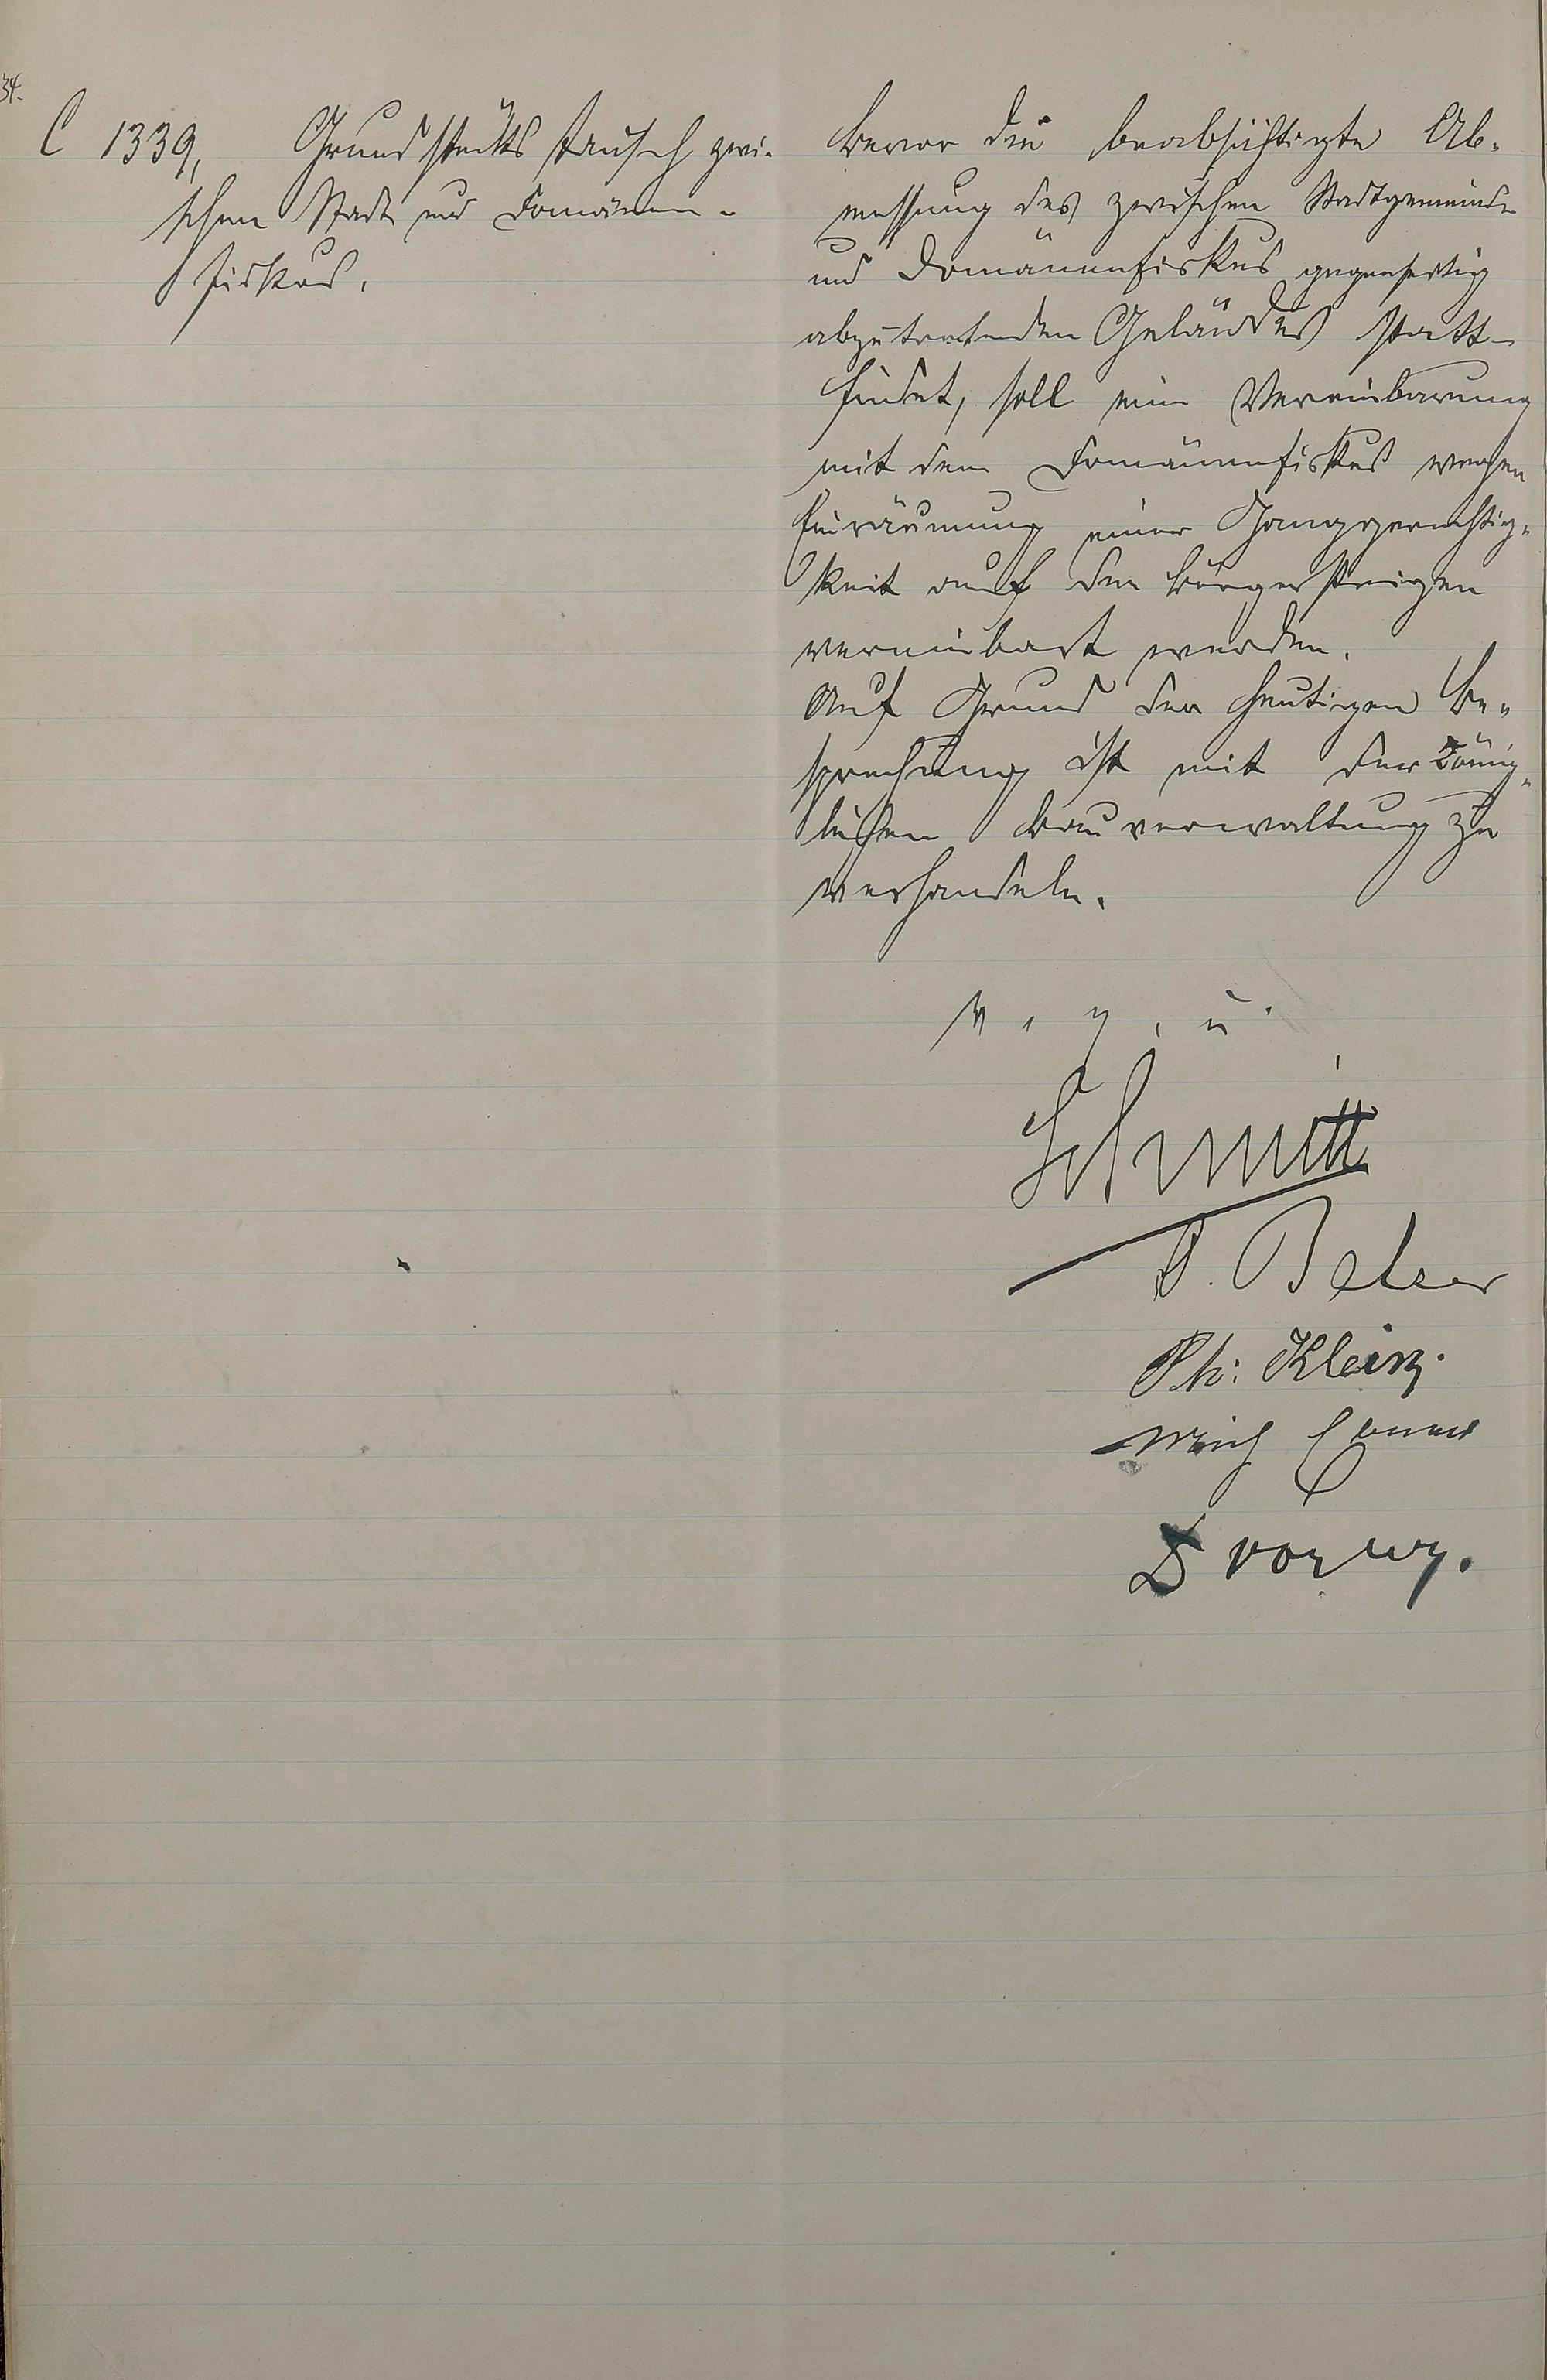 34.
C 1339, Grundstückstausch zwi-
schen Stadt und Domänen-
fiskus.
Bevor die beabsichtigte Ab-
messung des zwischen Stadtgemeinde
und Domänenfiskus gegenseitig
abzutretenden Geländes statt-
findet, soll eine Vereinbarung
mit dem Domänenfiskus wegen
Einräumung einer Ganggerechtig-
keit auf den Bürgersteigen
vereinbart werden.
Auf Grund der heutigen Be-
sprechung ist mit der König-
lichen Bauverwaltung zu
verhandeln.
v. g. u.
Schmitt
Ph: Klein.